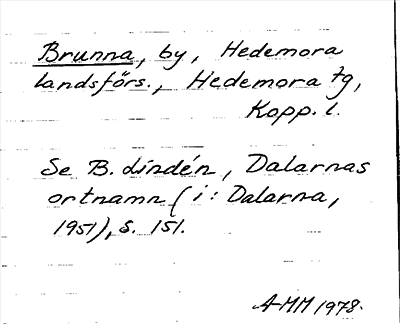 Brunna, by, Hedemora
landsförs., Hedemora tg,
Kopp. l.
Se B. Lindén, Dalarnas
ortnamn (i: Dalarna,
1951), s. 151.
AMM 1978.